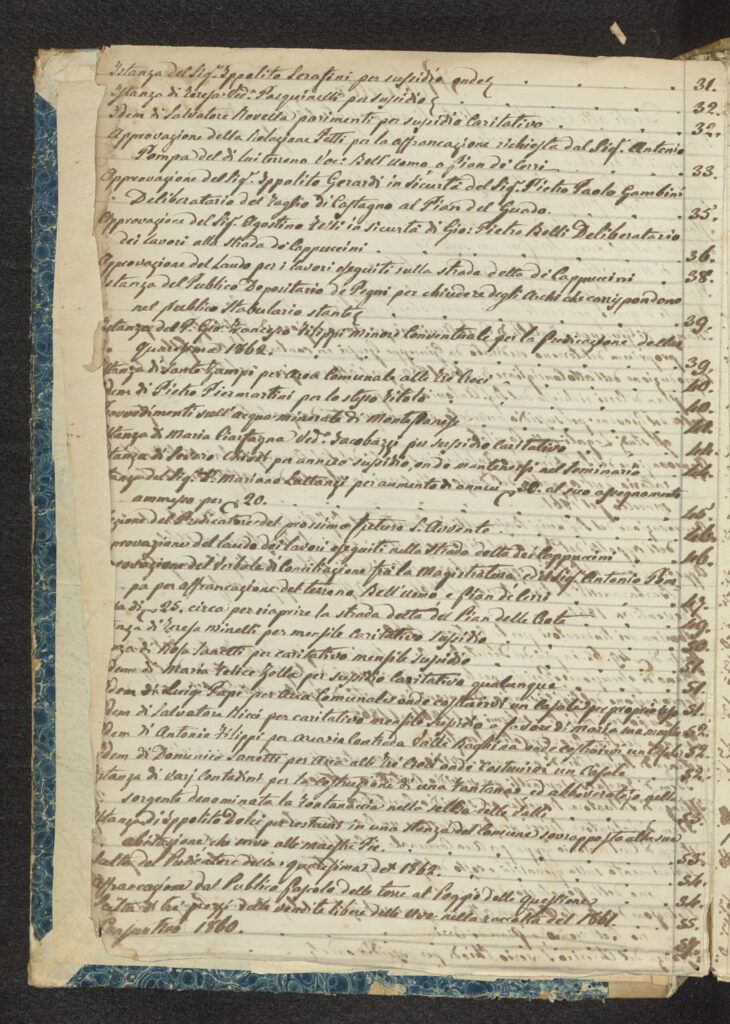 Istanza del Sigr. Ippolito Serafini per sussidio onde 31.
Istanza di Teresa Ved. Pasquinelli per sussidio 32.
Idem di Salvatore Novella parimenti per sussidio Caritativo 32.
Approvazione della Relazione Petti per la affrancazione richiesta dal Sigr. Antonio
Pompa del di lui terreno Voc. Bell'Uomo a Pian di Corri 33.
Approvazione del Sigr. Ippolito Gerardi in Sicurtà del Sigr. Pietro Paolo Gambini
Deliberatario del Taglio di Castagno al Pian del Guado. 35.
Approvazione del Sigr. Agostino in Sicurtà di Gio: Pietro Belli Deliberatario
dei lavori alla strada de Cappuccini 36.
Approvazione del Laudo per i lavori eseguiti sulla strada detta de Cappuccini 38.
stanza del Publico Depositario de Pegni per chiudere degli Archi che corrispondono
nel publico Stabulario stante 39.
Istanza del P. Gio: Francesco Filippi Minore Conventuale per la Predicazione della
Quaresima 1862. 39.
stanza di Santo Zampi per Area Comunale alle Tre Croci 40.
dem di Pietro Piermartini per lo stesso titolo 40.
rovvedimenti sull'acqua minerale di 41.
stanza di Maria Ved. Jacobazzi per sussidio Caritativo 44.
stanza di per annuo sussidio, onde mantenersi nel Seminario 44.
tanza del Sigr. D. Mariano Lattanzi per aumento di annui 30. al suo assegnamento
ammesso per 20. 45.
zione del Predicatore del prossimo futuro S. Avvento 46.
provazione del laudo dei lavori eseguiti nella Strada detta dei Cappuccini 46.
rovazione del Verbale di Conciliazione frà la Magistratura, ed il Sigr. Antonio Pom
pa per affrancazione del terreno Bell'Uomo e Pian di Corri 47.
a di 25. circa per riaprire la strada detta del Pian delle 49.
anza di Teresa Minelli per mensile Caritativo Sussidio 50.
nza di Rosa Zanetti per caritativo mensile Sussidio 51.
dem di Maria Felice Zolla per sussidio Caritativo qualunque 51.
dem di Luigi Papi per Area Comunale onde costruirvi un Casale per proprio uso 51.
dem di Salvatore Ricci per caritativo mensile sussidio a favore di Maria sua moglie 52.
dem di Antonio Filippi per Area in Contrada Valle onde costruirvi un Casale 52.
dem di Domenico Zanetti per Area alle Tre Croci onde Costruirvi un Casale 52.
stanza di varj Contadini per la Costruzione di una Fontana ed abbeveratojo nella
sorgente denominata la Fontanaccia nella Selva delle Valli 53.
stanza di Ippolito Dolci per restauri in una stanza del Comune sovrapposta alla sua
abitazione che serve alle Maestre Pie. 53.
celta del Predicatore della quaresima del 1862. 54.
Affrancazione dal Publico Pascolo delle terre al Poggio delle 54.
dei prezzi delle vendite libere delle Uve nella raccolta del 1861. 55.
Consuntivo 1860.